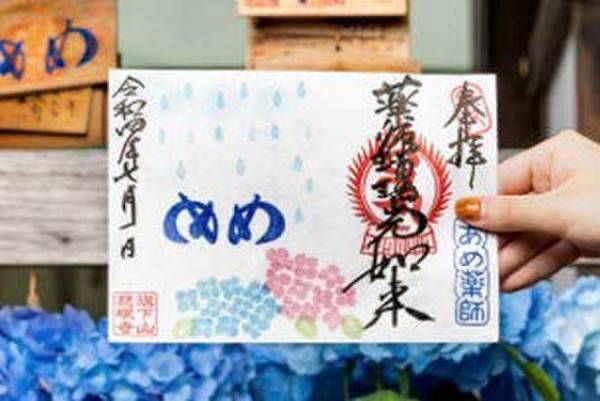 奉拝
あめ薬師
薬師瑠璃光如来
めめ
令和四年七月一日